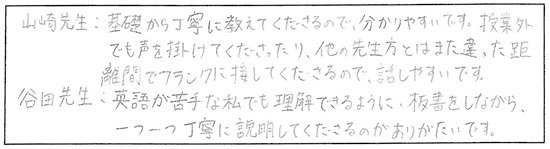 山崎先生：基礎から丁寧に教えてくださるので、分かりやすいです。授業外
でも声を掛けてくださったり、他の先生方とはまた違った距
離間でフランクに接してくださるので、話しやすいです。
谷田先生：英語が苦手な私でも理解できるように、板書をしながら、
一つ一つ丁寧に説明してくださるのがありがたいです。